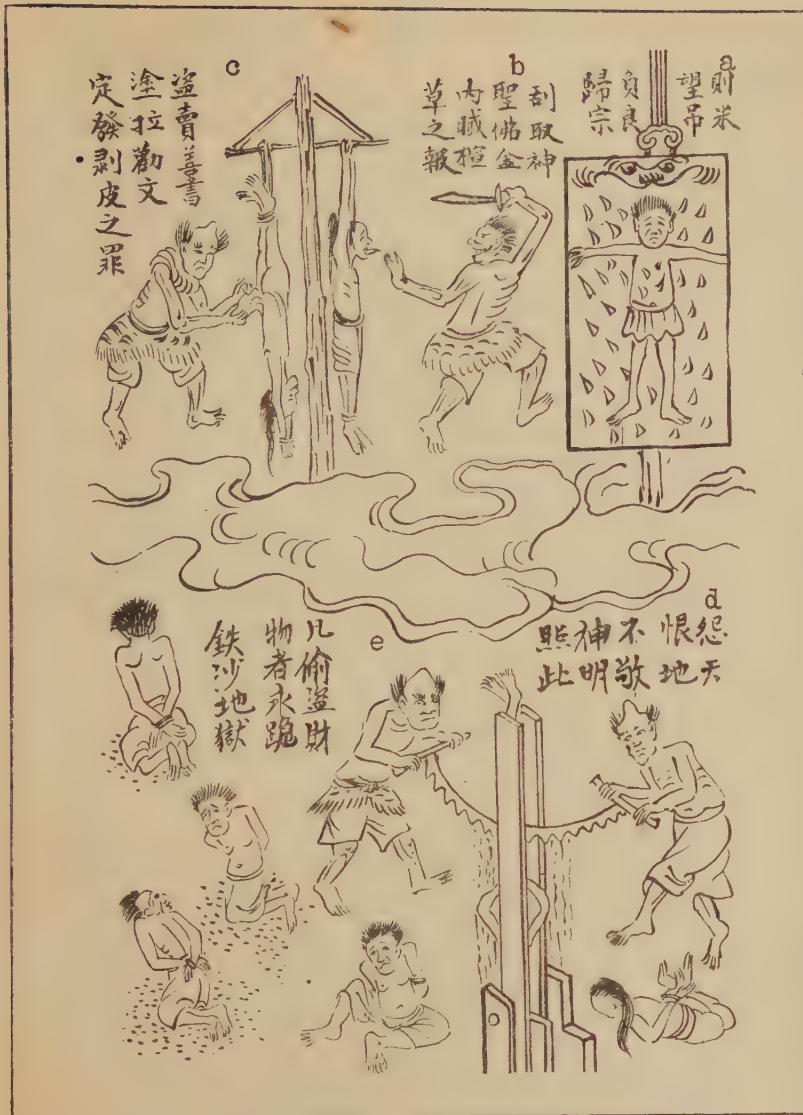 a
則米
望吊
負良
歸宗
b
刮取神
聖佛金
內賊楦
草之報
c
盗賣善書
塗拉勸文
定發剥皮之罪
d
怨天
恨地
不敬
神明
照此
e
凡偷盗財
物者永跪
鉄沙地獄